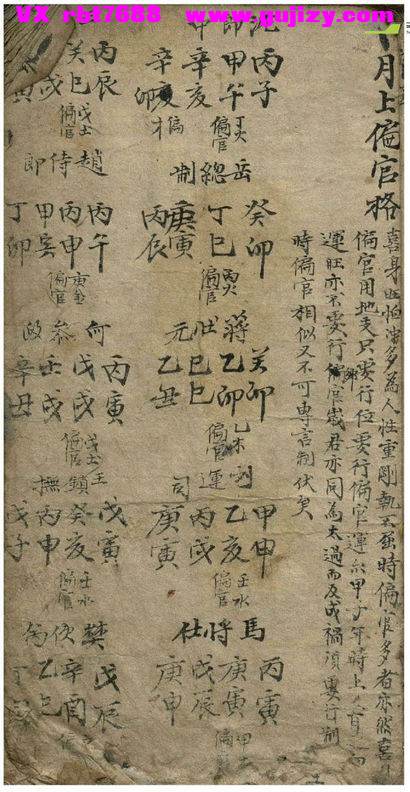 VX rbt7688  www.gujizy.com
月上偏官格
喜身旺怕冲多為人性重剛執不屈時偏官多者亦然喜
偏官用地支只要行位要行偏官運
運旺亦不要行偏官歲君亦同為太過而反成禍須要行制
時偏官相似又不可專言制伏矣
丙子
甲午
辛亥
辛卯
丁火
偏官
偏才
岳總制
癸卯
丁巳
庚寅
丙辰
丙火
偏官
蔣壯元
癸卯
乙卯
己巳
乙丑
乙木
偏官
劉運司
甲申
乙亥
丙戌
庚寅
壬水
偏官
馬將仕
丙寅
庚寅
戊辰
庚申
甲木
偏官
丙辰
癸巳
戊土
偏官
趙侍郎
丙午
丙申
甲寅
丁卯
庚金
偏官
何參政
丙寅
戊戌
壬戌
辛丑
戊土
偏官
王鎮撫
戊寅
癸亥
丙申
戊子
壬水
偏官
樊
戊辰
辛酉
乙巳